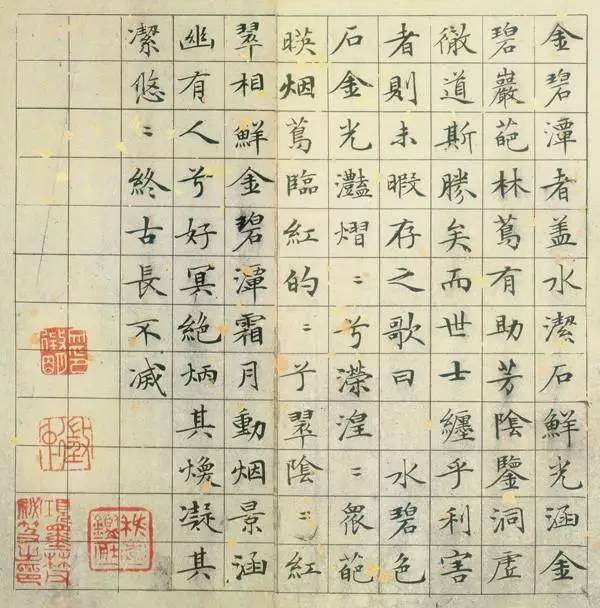 金碧潭者盖水潔石鮮光涵金
碧巖葩林蔦有助芳陰鑒洞虛
徹道斯勝矣而世士纏乎利害
者則未暇存之歌曰 水碧色
石金光灔熠〻兮濚湟〻衆葩
暎烟蔦臨紅的〻兮翠陰〻紅
翠相鮮金碧潭霜月動烟景涵
幽有人兮好冥絕炳其煥凝其
潔悠〻終古長不减
項墨林父
祕笈之印